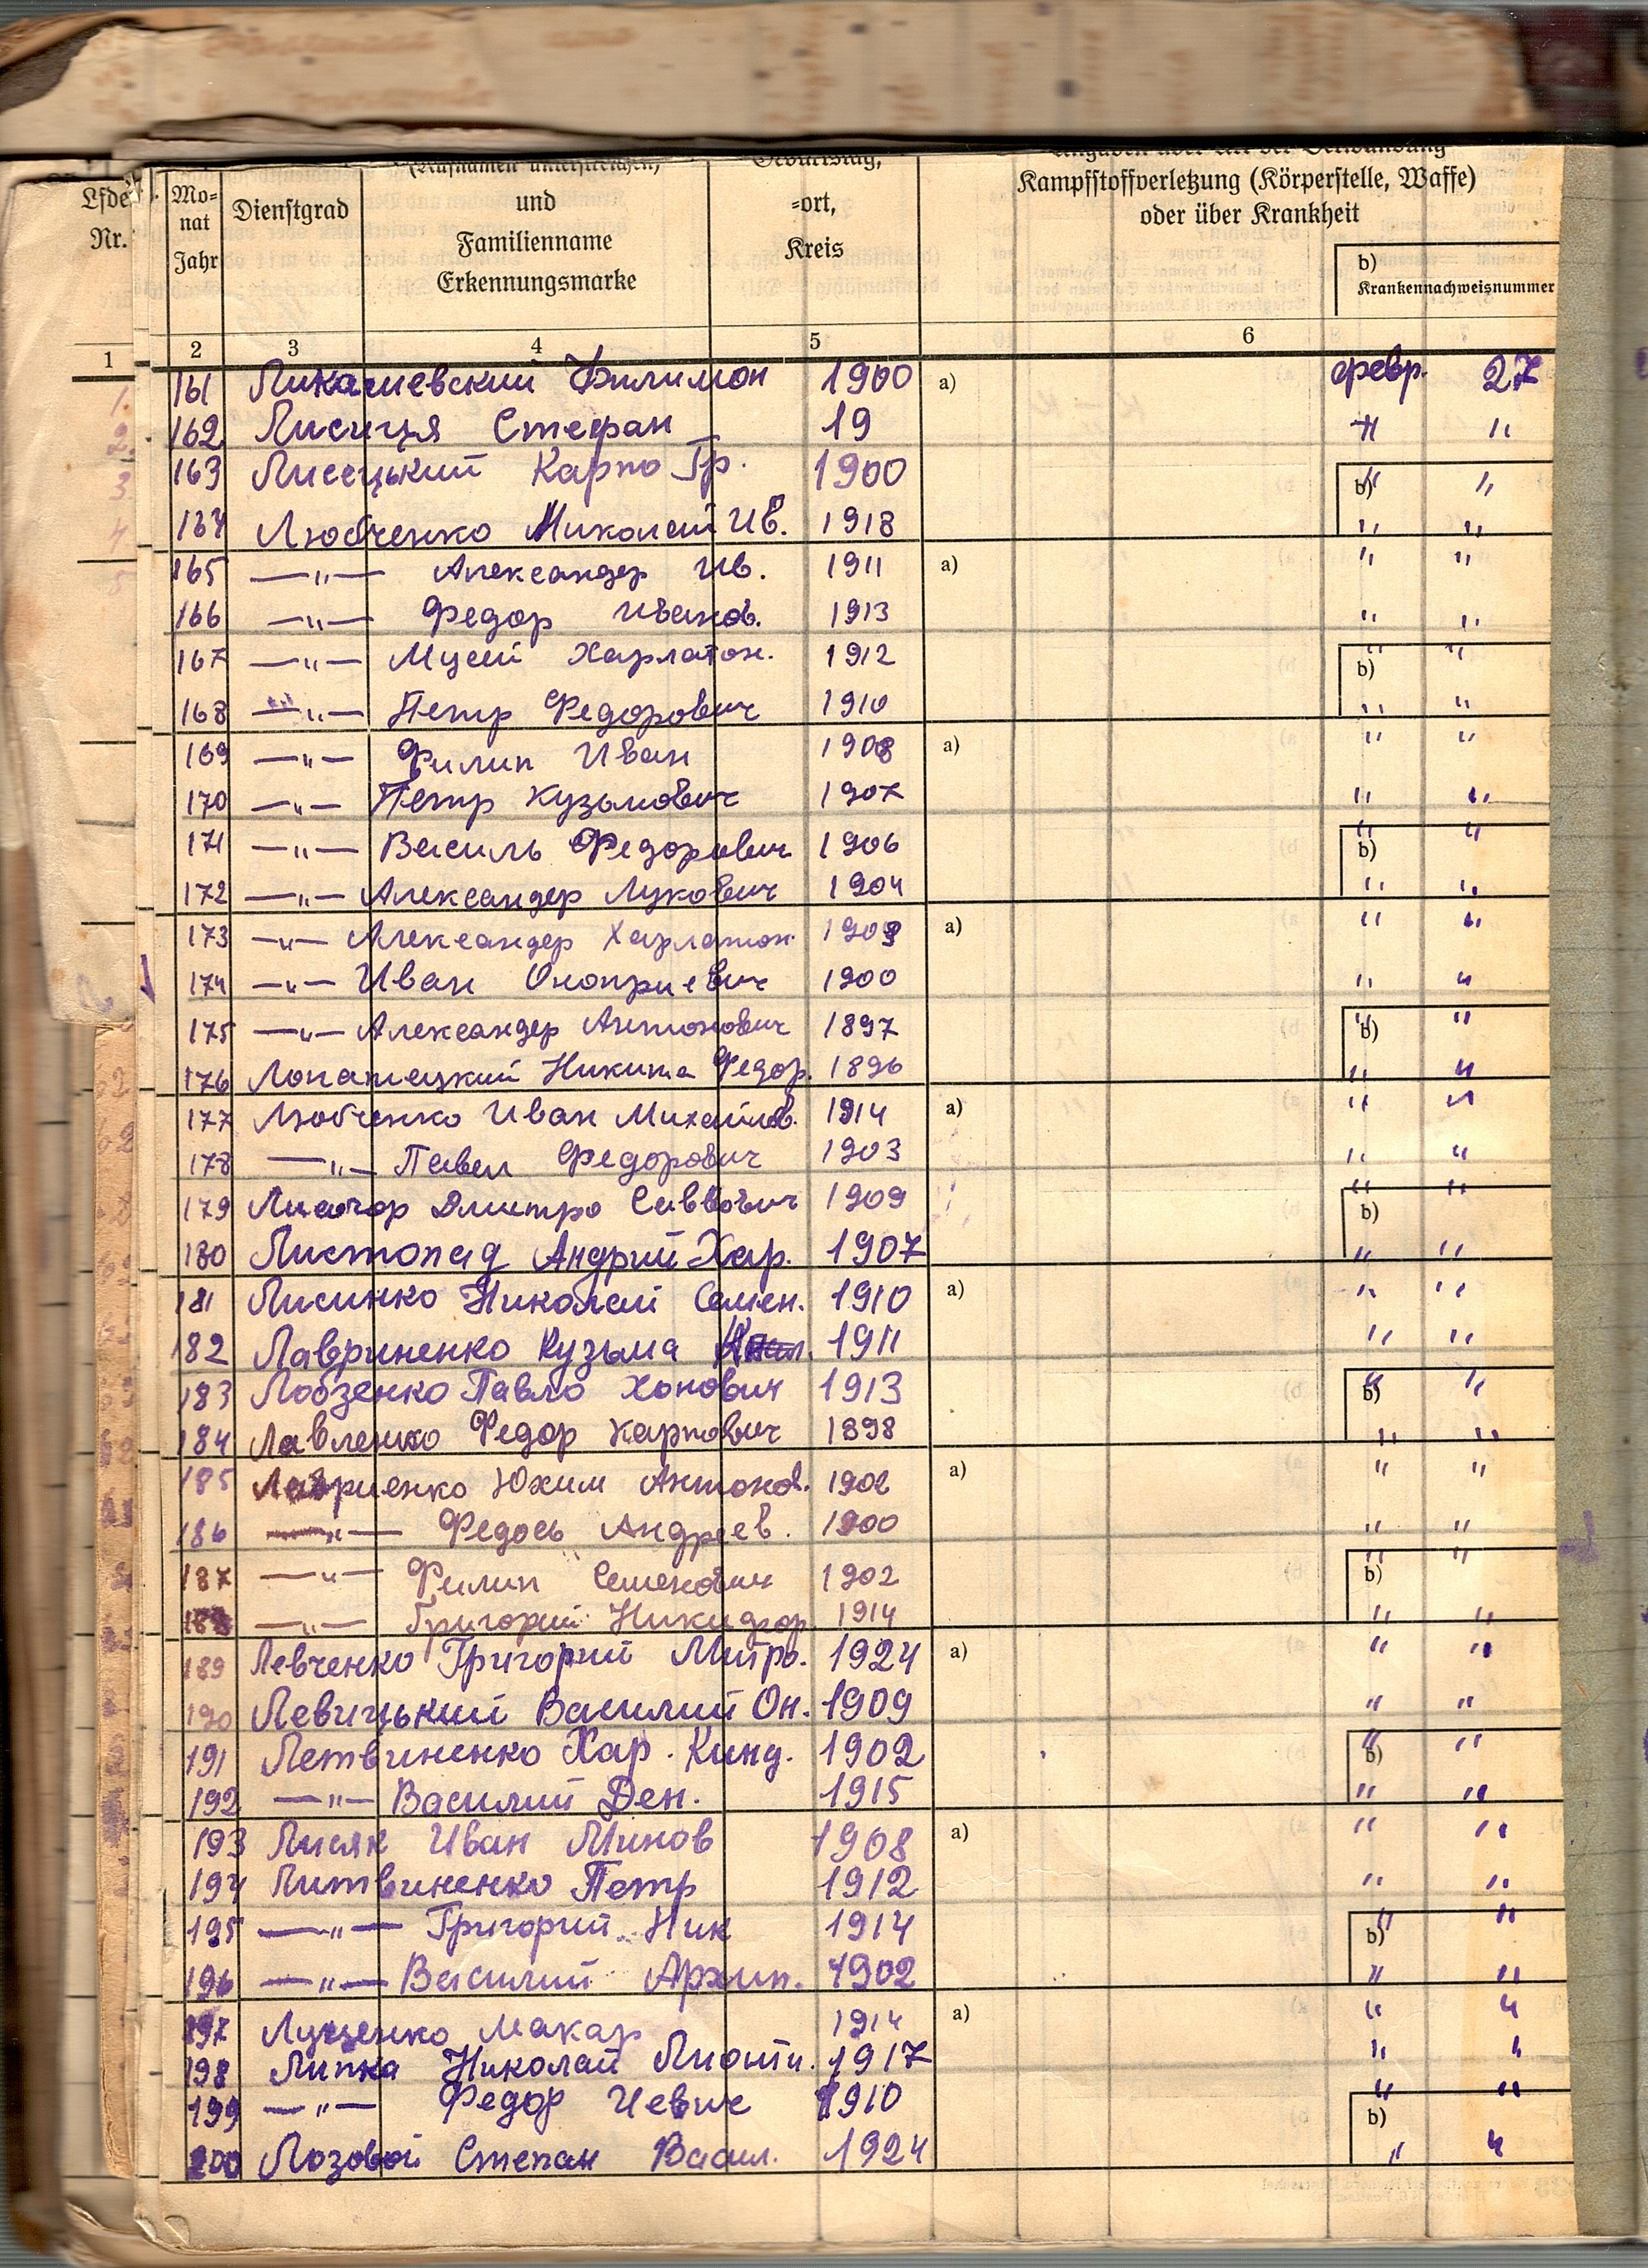 Lfde Nr.
Mo-nat Jahr
Dienstgrad
(Rufnamen unterstreichen) und Familienname Erkennungsmarke
Geburtstag, -ort, Kreis
Kampfstoffverletzung (Körperstelle, Waffe)
oder über Krankheit
b) Krankennachweisnummer
1 2 3 4 5 6
161 Филимон 1900 a) февр. 27
162 Лисиця Стефан 19 " "
163 Лисецький Карпо Гр. 1900 b) " "
164 Любченко Николай Ив. 1918 " "
165 —"— Александер Ив. 1911 a) " "
166 —"— Федор Иванов. 1913 " "
167 —"— Мусий Харлатон. 1912 b) " "
168 —"— Петр Федорович 1910 " "
169 —"— Филип Иван 1908 a) " "
170 —"— Петр Кузьмович 1907 " "
171 —"— Василь Федорович 1906 b) " "
172 —"— Александер Лукович 1904 " "
173 —"— Александер Харлатон. a) " "
174 —"— Иван Оноприевич 1900 " "
175 —"— Александер Антонович 1897 b) " "
176 Лопатецкий Никита Федор. 1896 " "
177 Любченко Иван Михайлов. 1914 a) " "
178 —"— Павел Федорович 1903 " "
179 Дмитро Саввович 1909 b) " "
180 Листопад Андрий Хар. 1907 " "
181 Лисинко Николай Семен. 1910 a) " "
182 Лавриненко Кузьма 1911 " "
183 Лобзенко Павло Хонович 1913 b) " "
184 Лавленко Федор Карпович 1898 " "
185 Лавриенко Юхим Антонов. 1902 a) " "
186 —"— Федось Андреев. 1900 " "
187 —"— Филип Семенович 1902 b) " "
188 —"— Григорий Никифор. 1914 " "
189 Левченко Григорий Митро. 1924 a) " "
190 Левицький Василий Он. 1909 " "
191 Летвиненко Хар. Кинд. 1902 b) " "
192 —"— Василий Ден. 1915 " "
193 Лисяк Иван Минов 1908 a) " "
194 Литвиненко Петр 1912 " "
195 —"— Григорий Ник 1914 b) " "
196 —"— Василий Архип. 1902 " "
197 Луценко Макар 1914 a) " "
198 Липка Николай Лионти. 1917 " "
199 —"— Федор 1910 b) " "
200 Лозовой Степан Васил. 1924 " "